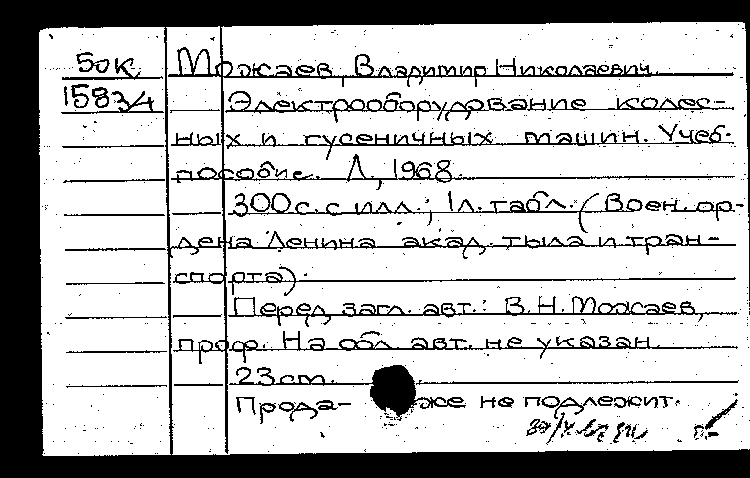 50К Можаев, Владимир Николаевич
1583/4 Электрооборудование колес-
ных и гусеничных машин. Учеб.
пособие. Л., 1968.
300 с. с илл.; 1 л. табл. (Воен. ор-
дена Ленина акад. тыла и тран-
спорта).
Перед загл. авт.: В. Н. Можаев,
проф. На обл. авт. не указан.
23 cm.
Прода- же не подлежит.